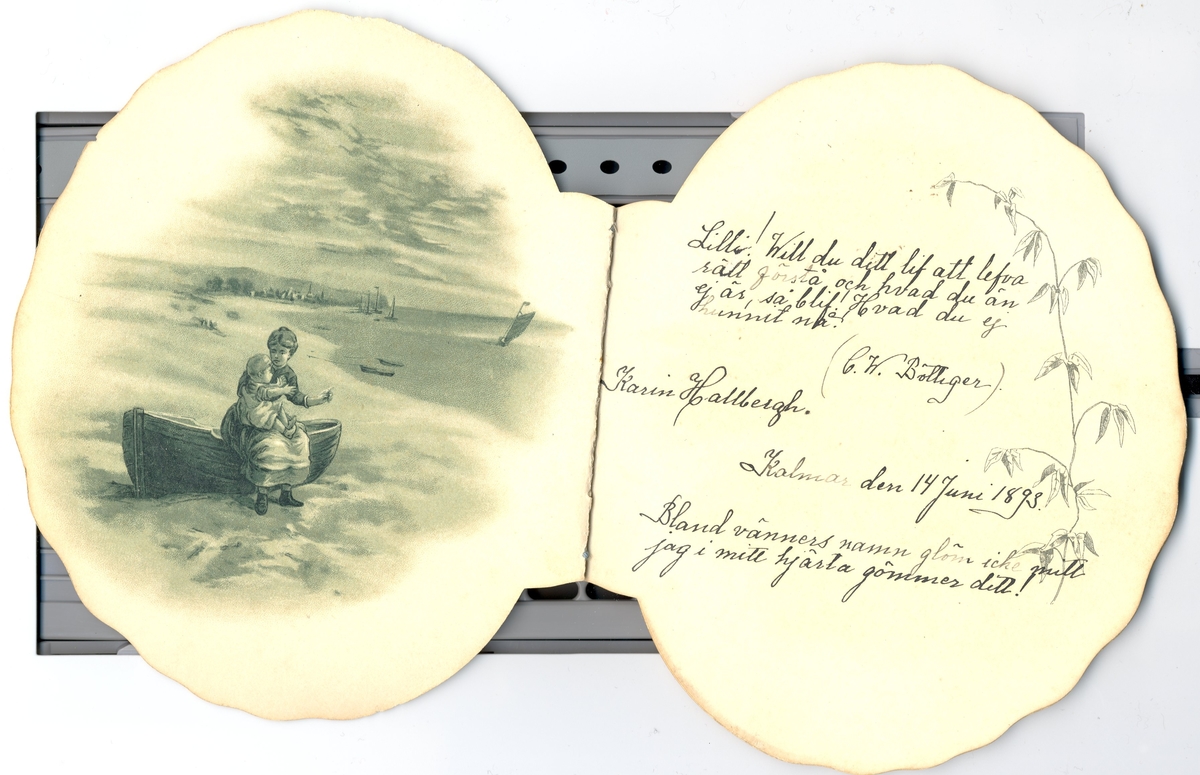 Lilli! Will du ditt lif att lefva
rätt förstå, och hvad du än
ej är, så blif! Hvad du ej
hunnit nå!
(C. W. Böttiger).
Karin Hallbergh.
Kalmar den 14 Juni 1893.
Bland vänners namn glöm icke mitt
jag i mitt hjärta gömmer ditt!